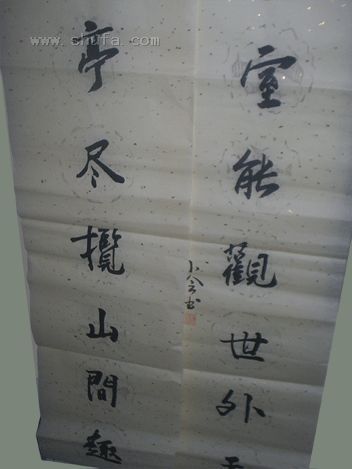 室能觀世外
亭尽攬山間趣
www.chufa.com